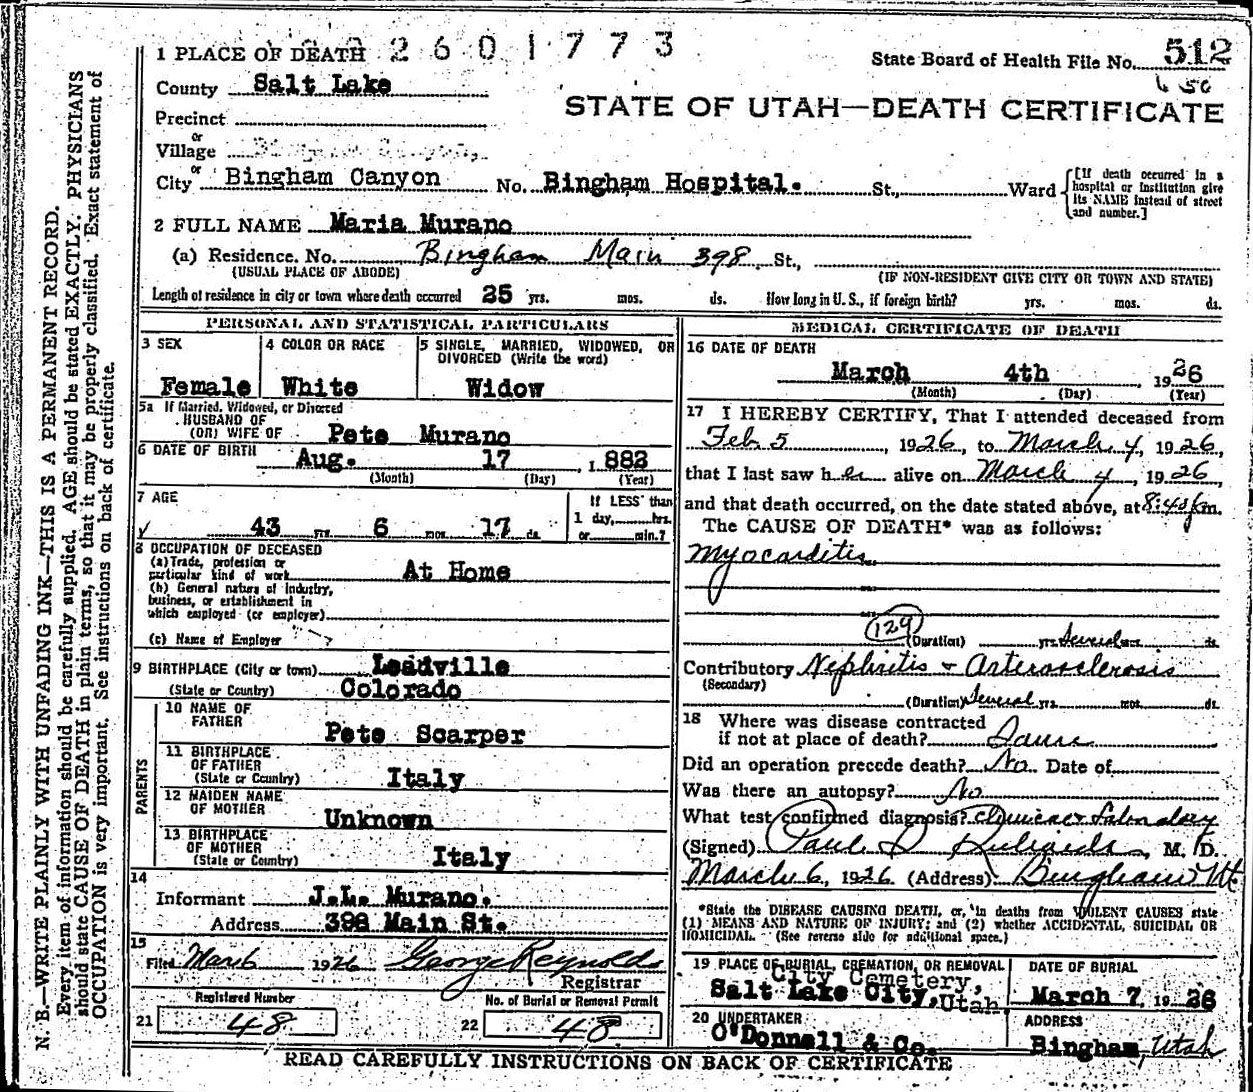 N. B.—WRITE PLAINLY WITH UNFADING INK—THIS IS A PERMANENT RECORD.
Every item of information should be carefully supplied. AGE should be stated EXACTLY. PHYSICIANS
should state CAUSE OF DEATH in plain terms, so that it may be properly classified. Exact statement of
OCCUPATION is very important. See instructions on back of certificate.
1 PLACE OF DEATH 2601773
State Board of Health File No. 512
County Salt Lake
STATE OF UTAH—DEATH CERTIFICATE
Precinct
or
Village Bingham Canyon,
or
City Bingham Canyon No. Bingham Hospital. St., Ward
[If death occurred in a
hospital or institution give
its NAME instead of street
and number.]
2 FULL NAME Maria Murano
(a) Residence. No. Bingham Main 398 St.,
(USUAL PLACE OF ABODE) (IF NON-RESIDENT GIVE CITY OR TOWN AND STATE)
Length of residence in city or town where death occurred 25 yrs. mos. ds. How long in U. S., if foreign birth? yrs. mos. ds.
PERSONAL AND STATISTICAL PARTICULARS
3 SEX
Female
4 COLOR OR RACE
White
5 SINGLE, MARRIED, WIDOWED, OR
DIVORCED (Write the word)
Widow
5a If Married, Widowed, or Divorced
HUSBAND OF
(OR) WIFE OF Pete Murano
6 DATE OF BIRTH
Aug. 17, 1882
(Month) (Day) (Year)
7 AGE
43 yrs. 6 mos. 17 ds.
If LESS than
1 day, hrs.
or min.?
8 OCCUPATION OF DECEASED
(a) Trade, profession or
particular kind of work At Home
(b) General nature of industry,
business, or establishment in
which employed (or employer)
(c) Name of Employer
9 BIRTHPLACE (City or town) Leadville
(State or Country) Colorado
PARENTS
10 NAME OF
FATHER Pete Scarper
11 BIRTHPLACE
OF FATHER
(State or Country) Italy
12 MAIDEN NAME
OF MOTHER Unknown
13 BIRTHPLACE
OF MOTHER
(State or Country) Italy
14
Informant J.L. Murano.
Address 398 Main St.
15
Filed Mar 6 1926 George Reynolds
Registrar
Registered Number
21 48
No. of Burial or Removal Permit
22 48
MEDICAL CERTIFICATE OF DEATH
16 DATE OF DEATH
March 4th, 1926
(Month) (Day) (Year)
17 I HEREBY CERTIFY, That I attended deceased from
Feb 5, 1926, to March 4, 1926,
that I last saw her alive on March 4, 1926
and that death occurred, on the date stated above, at 8:45 p m.
The CAUSE OF DEATH* was as follows:
Myocarditis
129
(Duration) yrs. Several mos. ds.
Contributory Nephritis + Arteriosclerosis
(Secondary)
(Duration) Several yrs. mos. ds.
18 Where was disease contracted
if not at place of death?
Did an operation precede death? No Date of
Was there an autopsy? No
What test confirmed diagnosis? Clinical & Laboratory
(Signed) Paul S Richards, M. D.
March 6, 1926 (Address) Bingham Ut
*State the DISEASE CAUSING DEATH, or, in deaths from VIOLENT CAUSES state
(1) MEANS AND NATURE OF INJURY; and (2) whether ACCIDENTAL, SUICIDAL OR
HOMICIDAL. (See reverse side for additional space.)
19 PLACE OF BURIAL, CREMATION, OR REMOVAL
City Cemetery,
Salt Lake City, Utah.
DATE OF BURIAL
March 7, 1926
20 UNDERTAKER
O'Donnell & Co.
ADDRESS
Bingham, Utah
READ CAREFULLY INSTRUCTIONS ON BACK OF CERTIFICATE